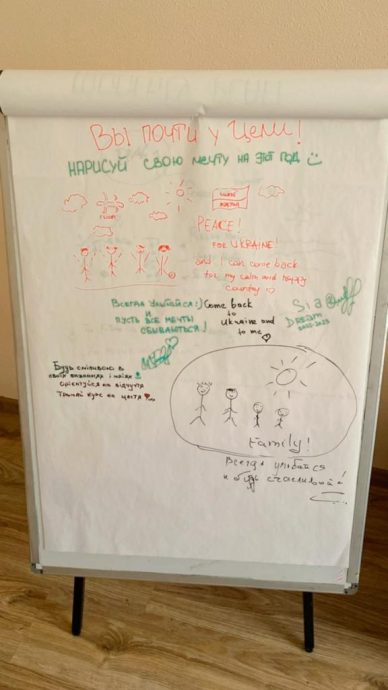 Вы почти у цели!
Нарисуй свою мечту на этот год
PEACE!
FOR UKRAINE!
and I can come back
for my calm and happy
country
Всегда улыбайся :)
и
пусть все мечты
сбываются!
Come back
to
Ukraine and
to me
Dream
Будь сміливою в
своїх
Орієнтуйся на відчуття
Тримай курс на щастя
Family!
Всегда улыбайся
и будь счастливой!